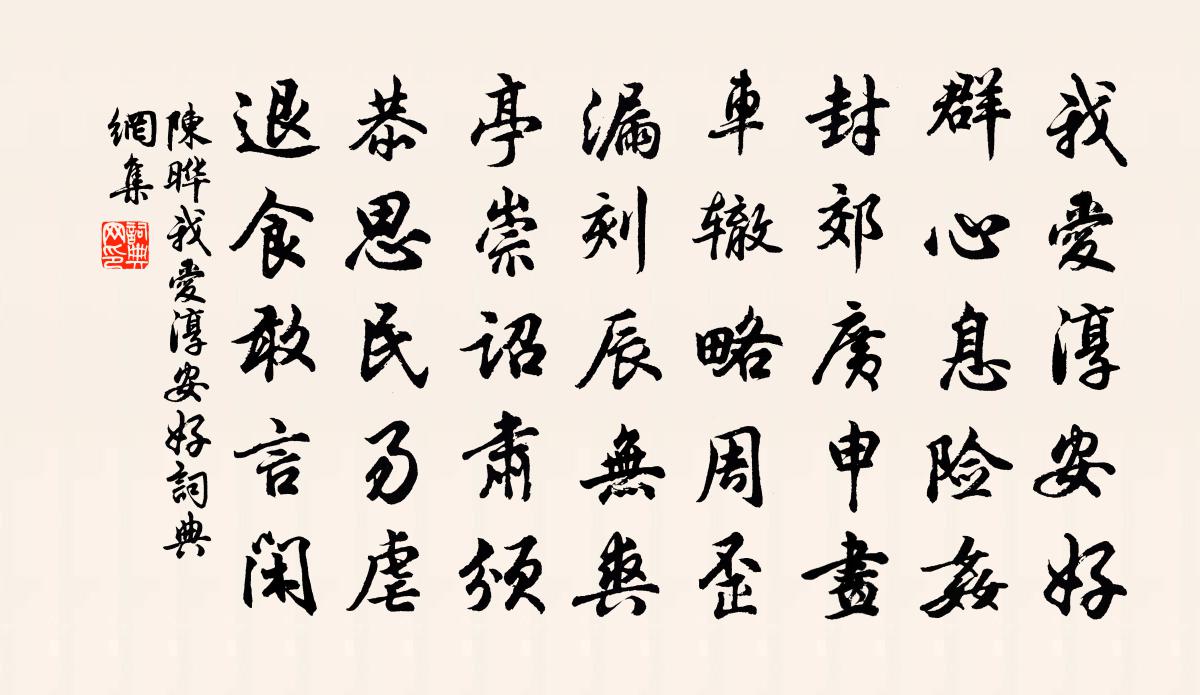 我愛淳安好
群心息险姦
封郊廣申畫
車辙略周歪
漏刻辰無爽
亭崇詔肅頒
恭思民勿虐
退食敢言閑
陳曄我愛淳安好詞典
網集
詞典
网印